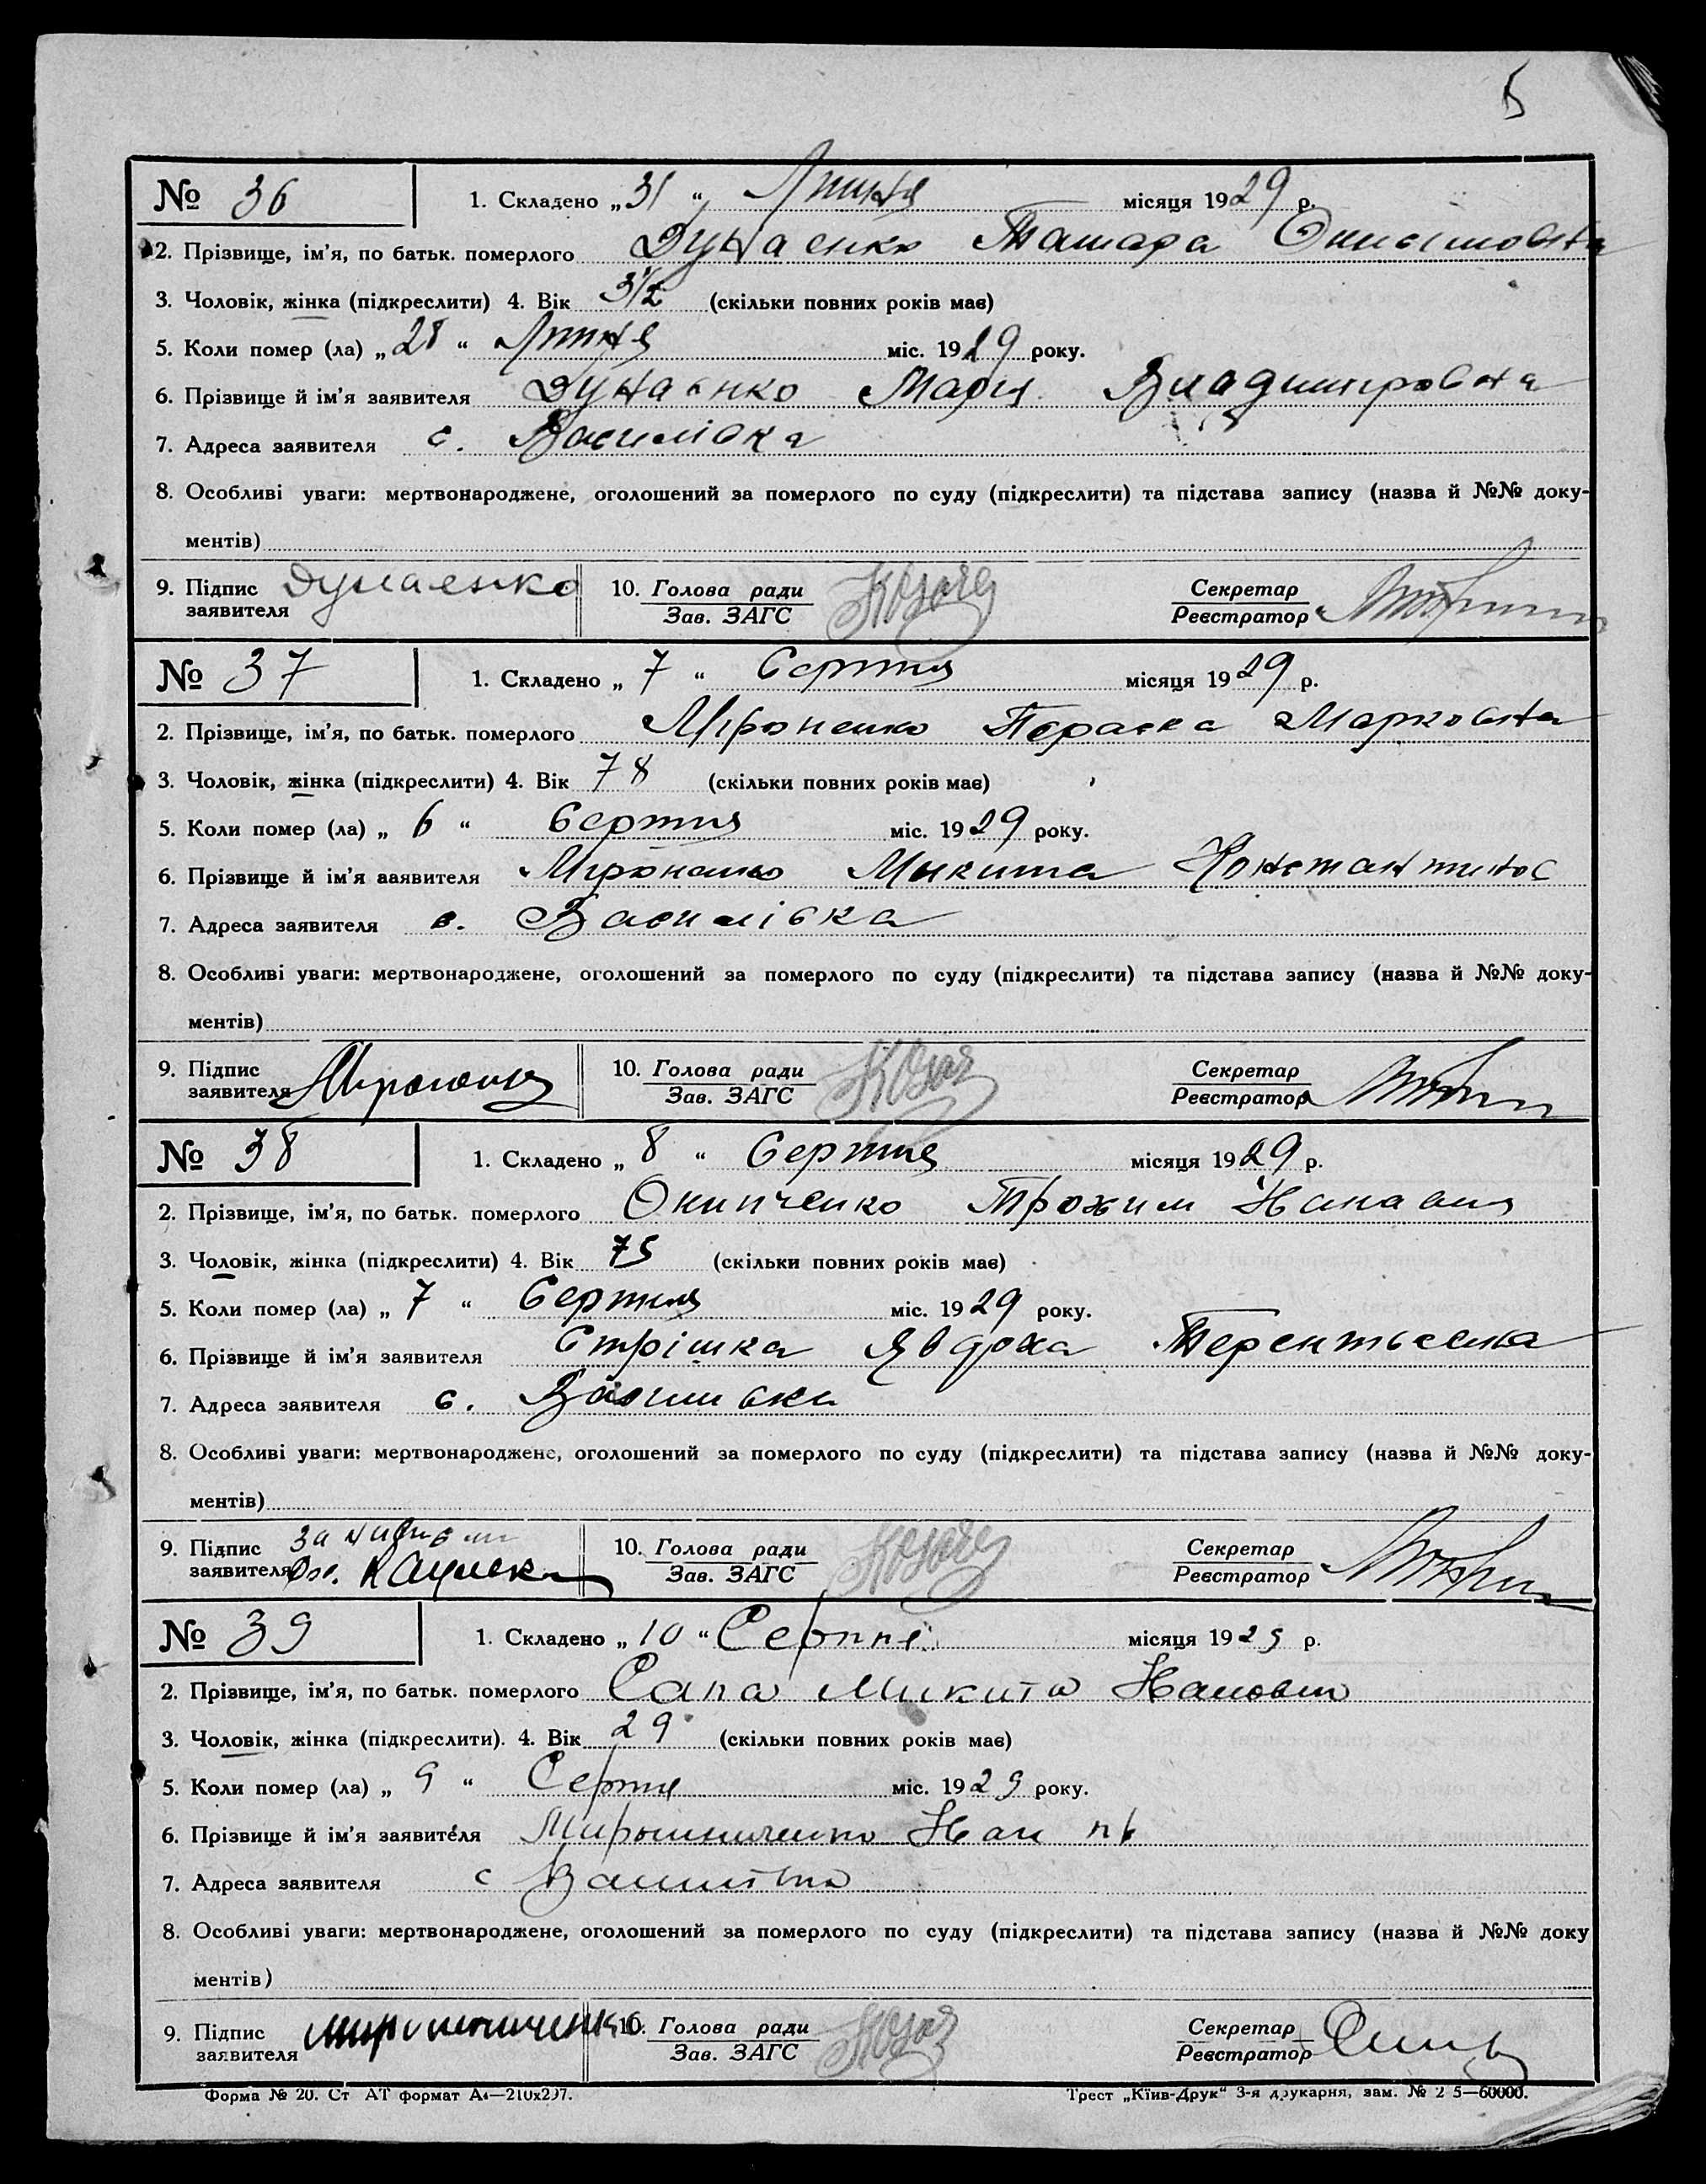 5
№ 36 1. Складено „31“ Липня місяця 1929 р.
2. Прізвище, ім'я, по батьк. померлого Дунаенко Тамара Онисимовна
3. Чоловік, жінка (підкреслити) 4. Вік 3½ (скільки повних років має)
5. Коли помер (ла) „28“ Липня міс. 1929 року.
6. Прізвище й ім'я заявителя Дунаенко Мария Владимировна
7. Адреса заявителя с. Василівка
8. Особливі уваги: мертвонароджене, оголошений за померлого по суду (підкреслити) та підстава запису (назва й №№ доку-
ментів)
9. Підпис заявителя Дунаенко 10. Голова ради Зав. ЗАГС Секретар Реєстратор
№ 37 1. Складено „7“ Серпня місяця 1929 р.
2. Прізвище, ім'я, по батьк. померлого Мироненко Параска Марковна
3. Чоловік, жінка (підкреслити) 4. Вік 78 (скільки повних років має)
5. Коли помер (ла) „6“ Серпня міс. 1929 року.
6. Прізвище й ім'я заявителя Мироненко Микита Константинов
7. Адреса заявителя с. Василівка
8. Особливі уваги: мертвонароджене, оголошений за померлого по суду (підкреслити) та підстава запису (назва й №№ доку-
ментів)
9. Підпис заявителя Мироненко 10. Голова ради Зав. ЗАГС Секретар Реєстратор
№ 38 1. Складено „8“ Серпня місяця 1929 р.
2. Прізвище, ім'я, по батьк. померлого Онипченко Трохим
3. Чоловік, жінка (підкреслити) 4. Вік 75 (скільки повних років має)
5. Коли помер (ла) „7“ Серпня міс. 1929 року.
6. Прізвище й ім'я заявителя Стрішка Явдоха Терентьевна
7. Адреса заявителя с. Василивка
8. Особливі уваги: мертвонароджене, оголошений за померлого по суду (підкреслити) та підстава запису (назва й №№ доку-
ментів)
9. Підпис заявителя за 10. Голова ради Зав. ЗАГС Секретар Реєстратор
№ 39 1. Складено „10“ Серпня місяця 1929 р.
2. Прізвище, ім'я, по батьк. померлого Сапа Микита
3. Чоловік, жінка (підкреслити). 4. Вік 29 (скільки повних років має)
5. Коли помер (ла) „9“ Серпня міс. 1929 року.
6. Прізвище й ім'я заявителя Мирошниченко
7. Адреса заявителя с Василівка
8. Особливі уваги: мертвонароджене, оголошений за померлого по суду (підкреслити) та підстава запису (назва й №№ доку
ментів)
9. Підпис заявителя Мирошниченко 10. Голова ради Зав. ЗАГС Секретар Реєстратор
Форма № 20. Ст АТ формат А4—210x297. Трест „Київ-Друк“ 3-я друкарня, зам. № 2 5—60000.